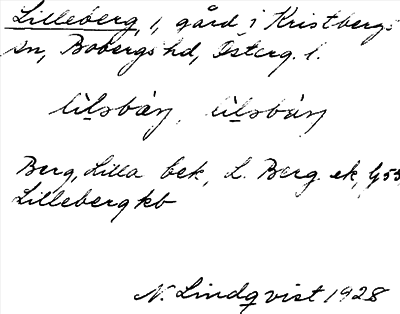 Lilleberg, 1, gård i Kristbergs
sn, Bobergs hd, Österg. l.
Berg, Lilla bek, L. Berg. ek, G55
Lilleberg kb
N. Lindqvist 1928